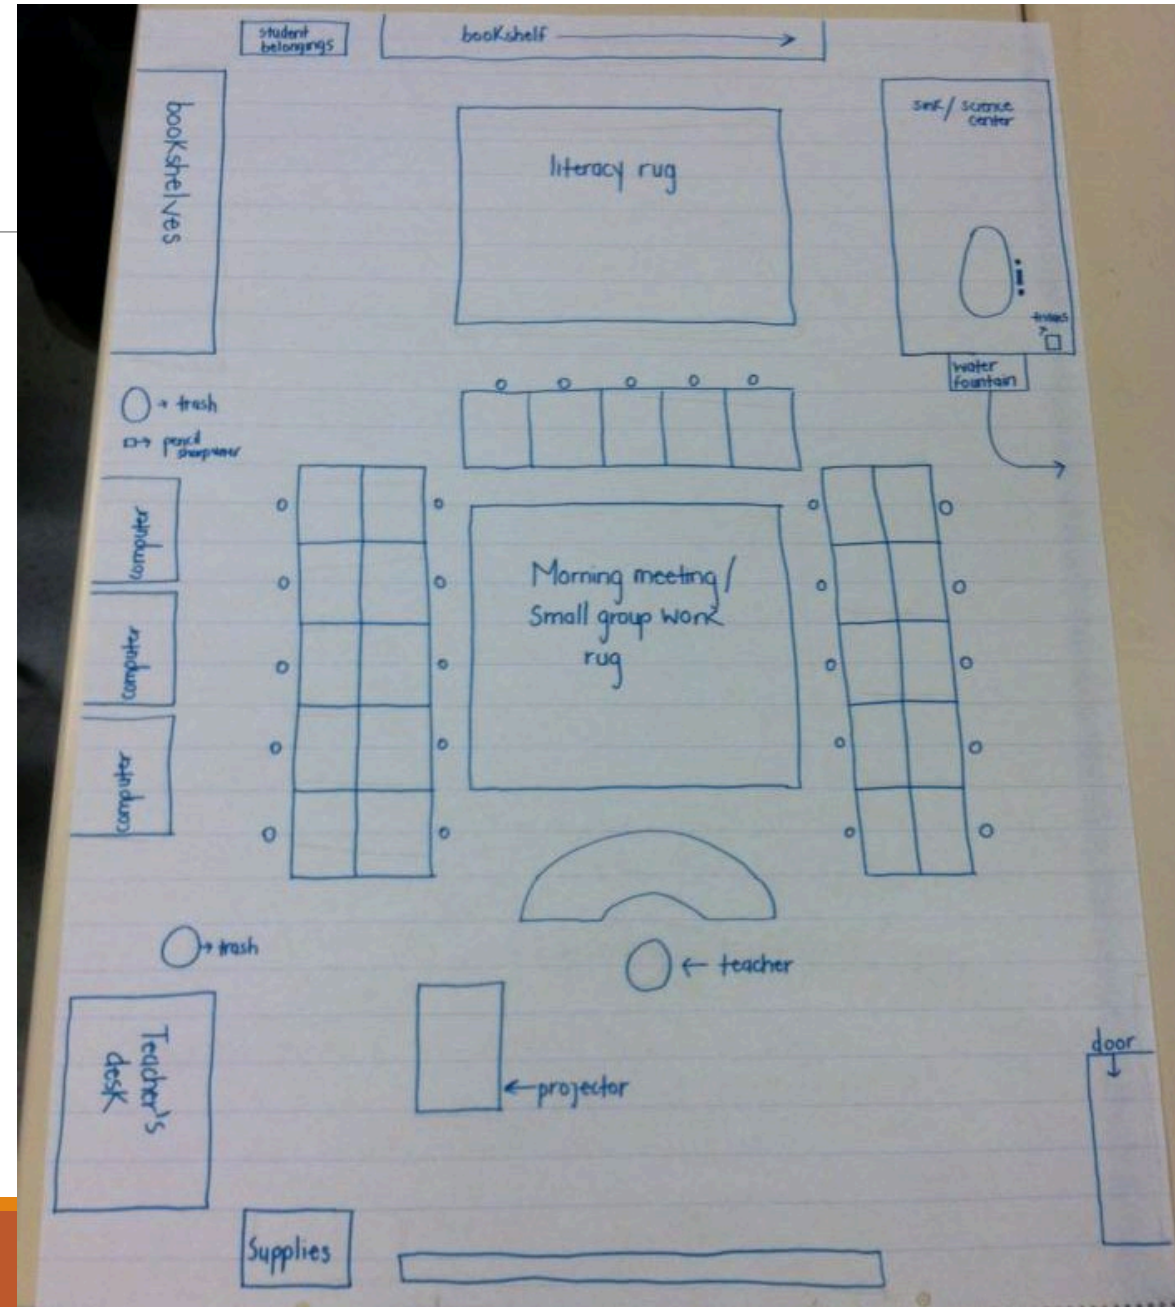 student
belongings
bookshelf
bookshelves
literacy rug
sink / science
center
water
fountain
trash
pencil
sharpener
computer
computer
computer
Morning meeting /
Small group work
rug
trash
teacher
Teacher's
desk
projector
door
Supplies